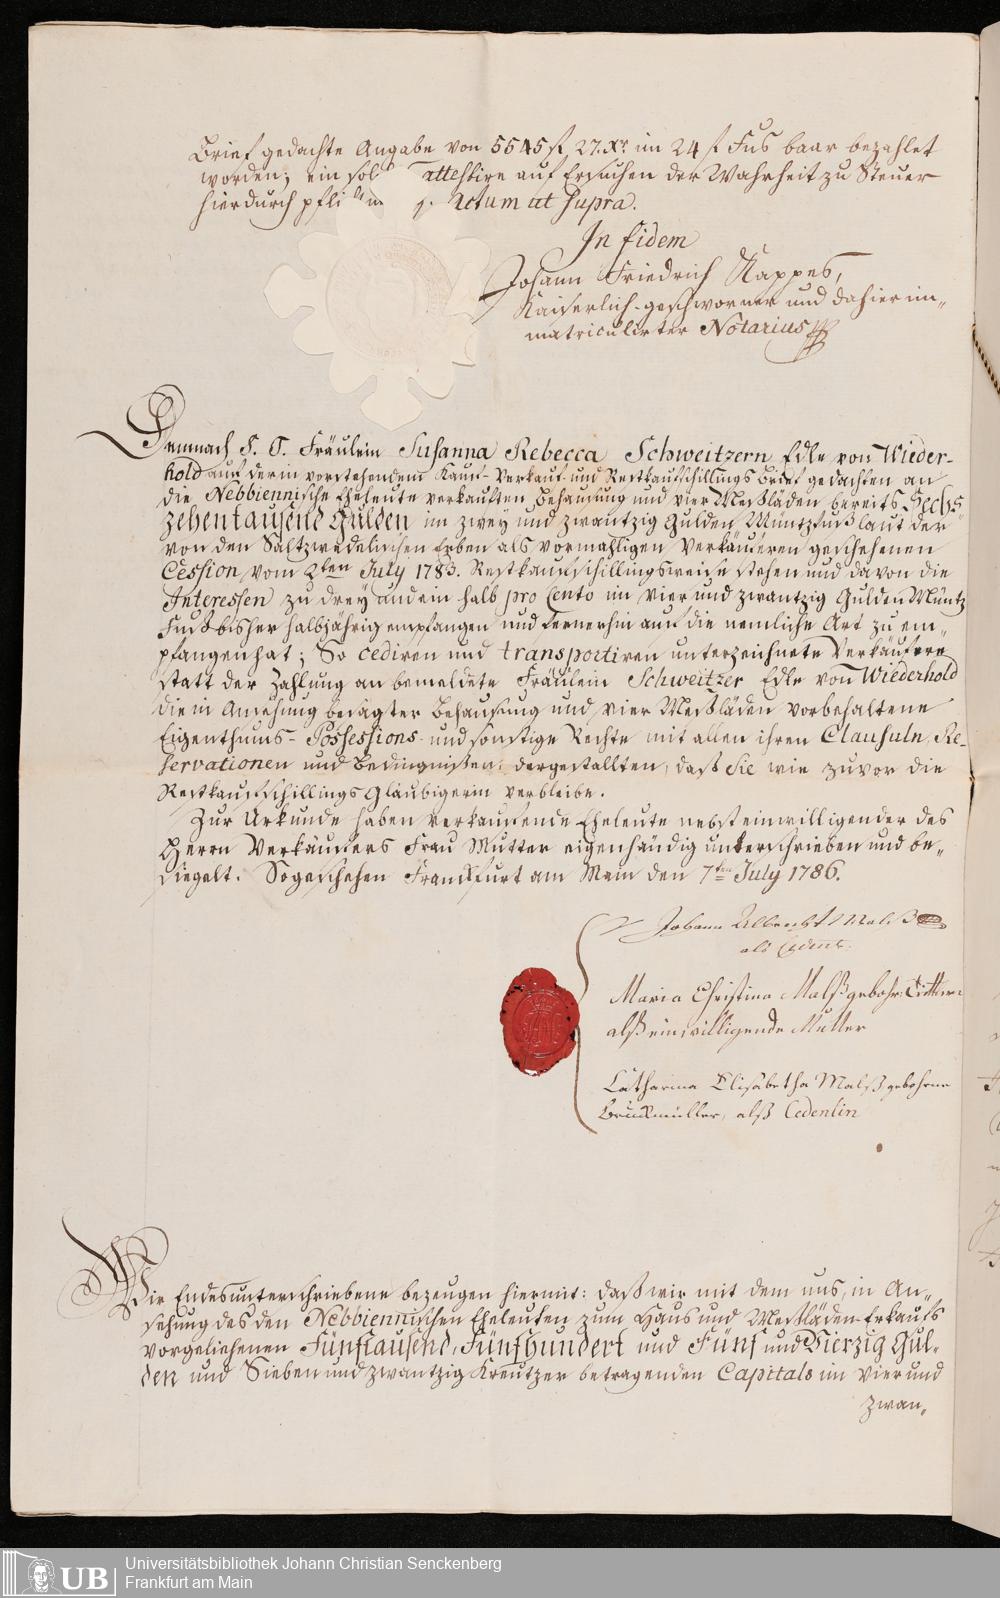 Brief gedachte Angabe von 5545 f 27. Xr. im 24 f Fus baar bezahlet
worden; ein sol attestire auf Ersuchen der Wahrheit zu Steuer
hierdurch pfli Actum ut Supra.
In fidem
Johann Friedrich Kappes,
Kaiserlich-geschworner und dahier im„
matriculirter Notarius
Demnach S. T. Fräulein Susanna Rebecca Schweitzern Edle von Wieder-
hold auf derin vorstehendem Kauf- Verkauf- und Restkaufschillings Brief gedachten an
die Nebbiennische Eheleute verkauften Behausung und vier Meßläden bereits Sechs
zehentausend Gulden im zwey und zwantzig Gulden Müntzfuß laut der
von den Saltzwedelischen Erben als vormahligen Verkäuferen geschehenen
Cession vom 2ten July 1783. Restkaufschillingsweise stehen und davon die
Interessen zu drey undein halb pro Cento im vier und zwantzig Gulden Müntz
Fuß bisher halbjährig empfangen und fernerhin auf die nemliche Art zu em„
pfangen hat; So cediren und transportiren unterzeichnete Verkäufere
statt der Zahlung an bemeldete Fräulein Schweitzer Edle von Wiederhold
die in Ansehung besagter Behausung und vier Meßläden vorbehaltene
Eigenthums- Possessions- und sonstige Rechte mit allen ihren Clausuln, Re-
servationen und Bedingnißen: dergestallten, daß Sie wie zuvor die
Restkaufschillings Gläubigerin verbleibe.
Zur Urkunde haben verkaufende Eheleute nebst einwilligender des
Herrn Verkäufers Frau Mutter eigenhändig unterschrieben und be„
siegelt. So geschehen Franckfurt am Main den 7ten July 1786.
Johann Albrecht Malß
als Cedent.
Maria Christina Malß gebohr:
alß einwilligende Mutter
Catharina Elisabetha Malß gebohrne
Bruckmüller, alß Cedentin
Wir Endesunterschriebene bezeugen hiermit: daß wir mit dem uns, in An„
sehung des den Nebbiennischen Eheleuten zum Haus und Meßläden-Erkaufs
vorgeliehenen Fünftausend, Fünfhundert und Fünf und Vierzig Gul-
den und Sieben und zwantzig Kreutzer betragenden Capitals im Vier und
zwan„
UB
Universitätsbibliothek Johann Christian Senckenberg
Frankfurt am Main